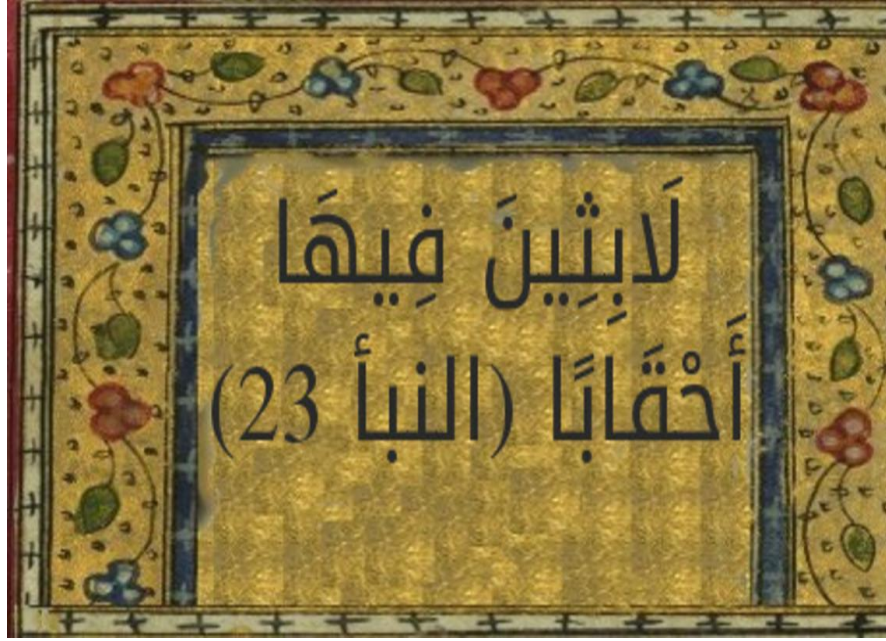 لَابِثِينَ فِيهَا
أَحْقَابًا (النبأ 23)